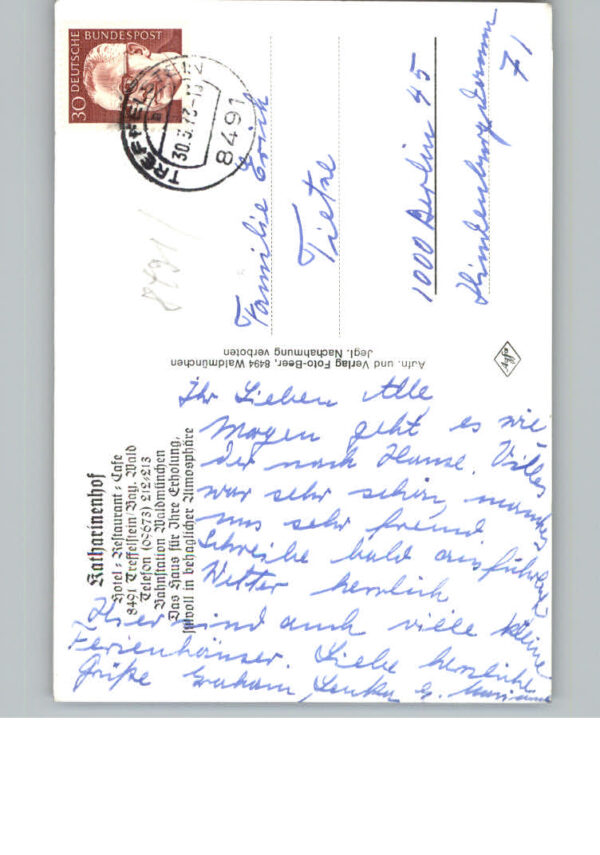 Katharinenhof
Hotel-Restaurant-Cafe
8491 Treffelstein/Bay. Wald
Telefon (09673) 212+213
Bahnstation Waldmünchen
Das Haus für Ihre Erholung,
stilvoll in behaglicher Atmosphäre
Ihr Lieben Alle,
Morgen geht es wie
der nach Hause. Vieles
war sehr schön, manches
uns sehr fremd
Schreibe bald ausführlich
Wetter herrlich
Hier sind auch viele kleine
Ferienhäuser. Liebe herzliche
Grüße Graham,
Aufn. und Verlag Foto-Beer, 8494 Waldmünchen
Jegl. Nachahmung verboten
Agfa
30 DEUTSCHE BUNDESPOST
TREFFELSTEIN
8491
8491
Familie Erich
Tietze
1000 Berlin 45
Hindenburgdamm
71